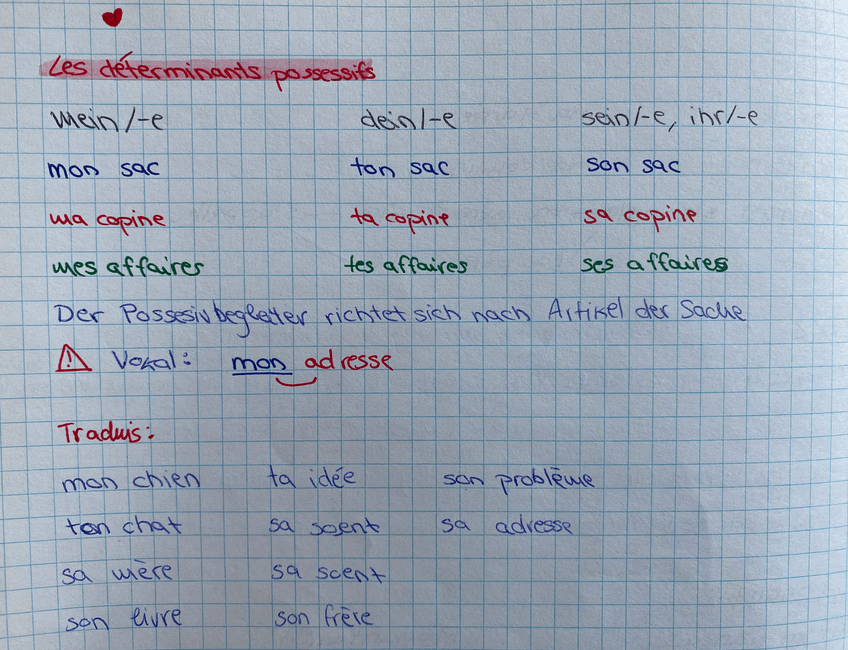 Les déterminants possessifs
mein/-e dein/-e sein/-e, ihr/-e
mon sac ton sac son sac
ma copine ta copine sa copine
mes affaires tes affaires ses affaires
Der Possesivbegleiter richtet sich nach Artikel der Sache
⚠ Vokal: mon adresse
Traduis:
mon chien ta idée son problème
ton chat sa soent sa adresse
sa mère sa scent
son livre son frère